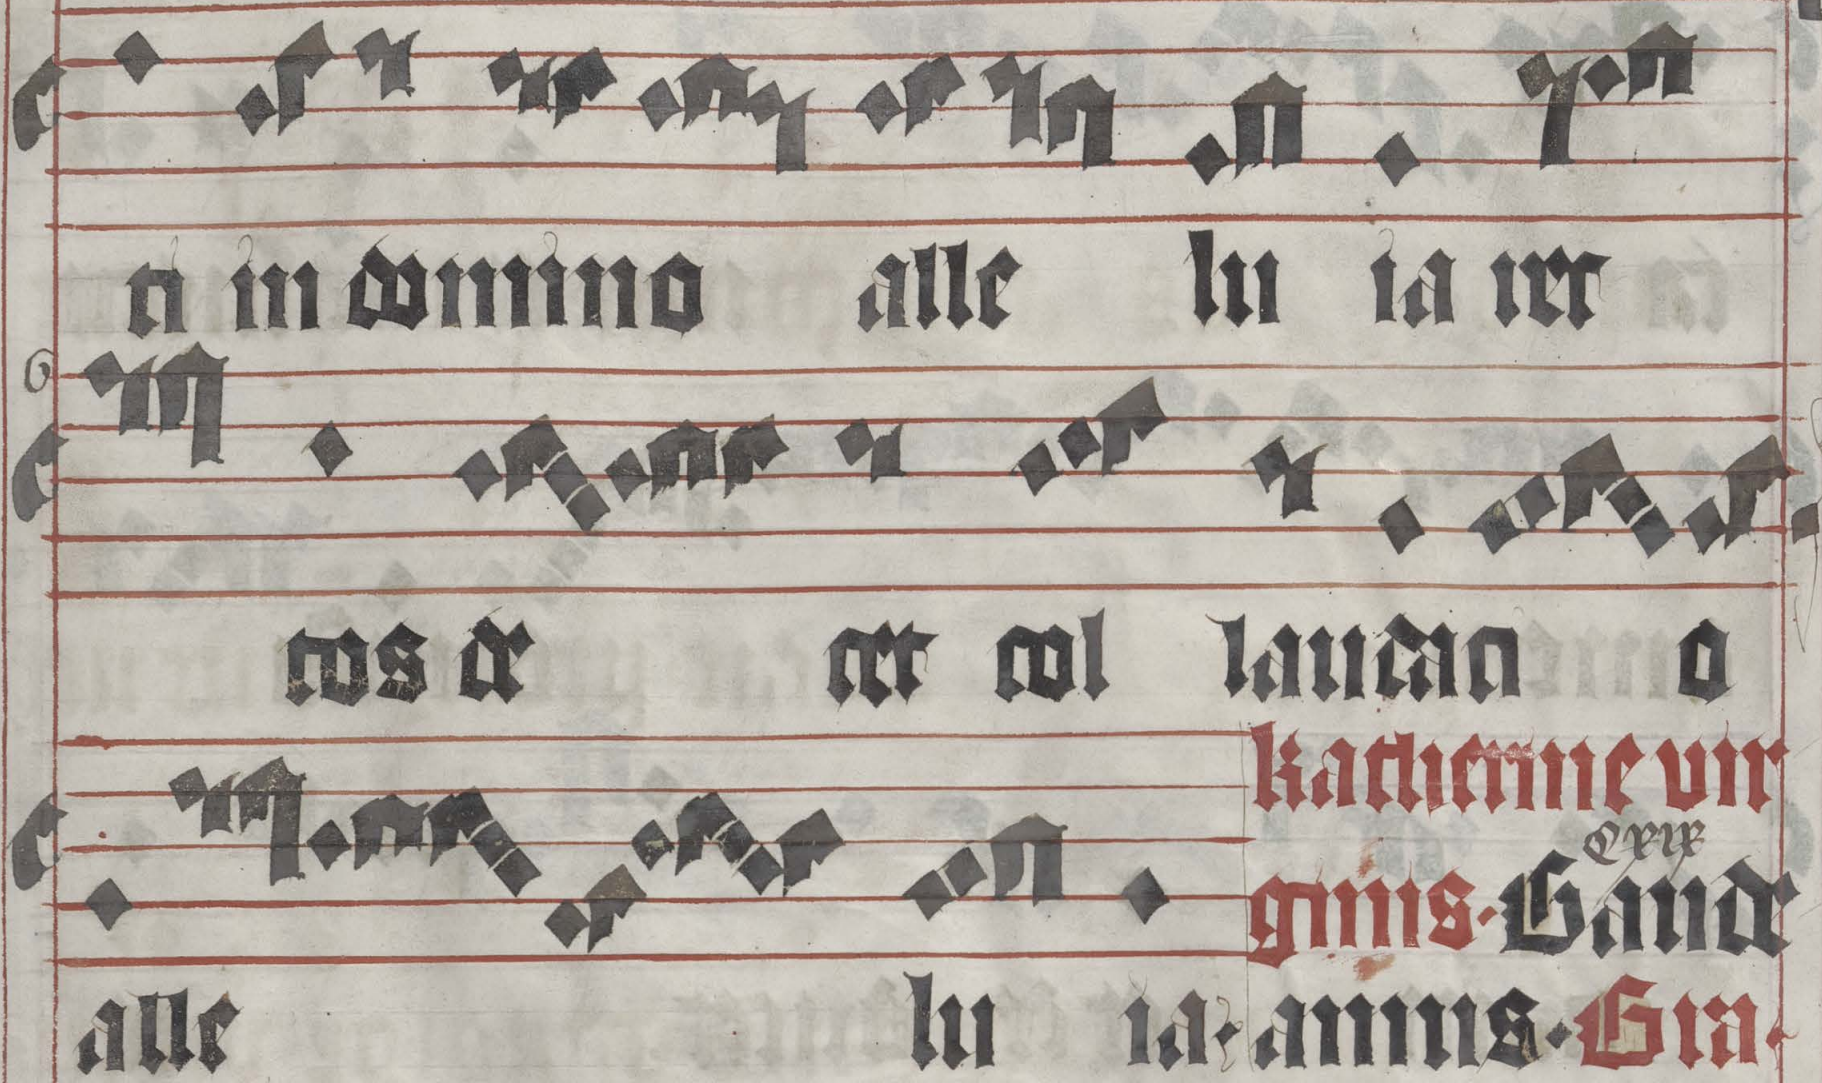 ti in domino alle lu ia rec
tos de cet col laudati o
katherine vir
cxix
ginis. Gaude
alle lu ia. amus. Gra.